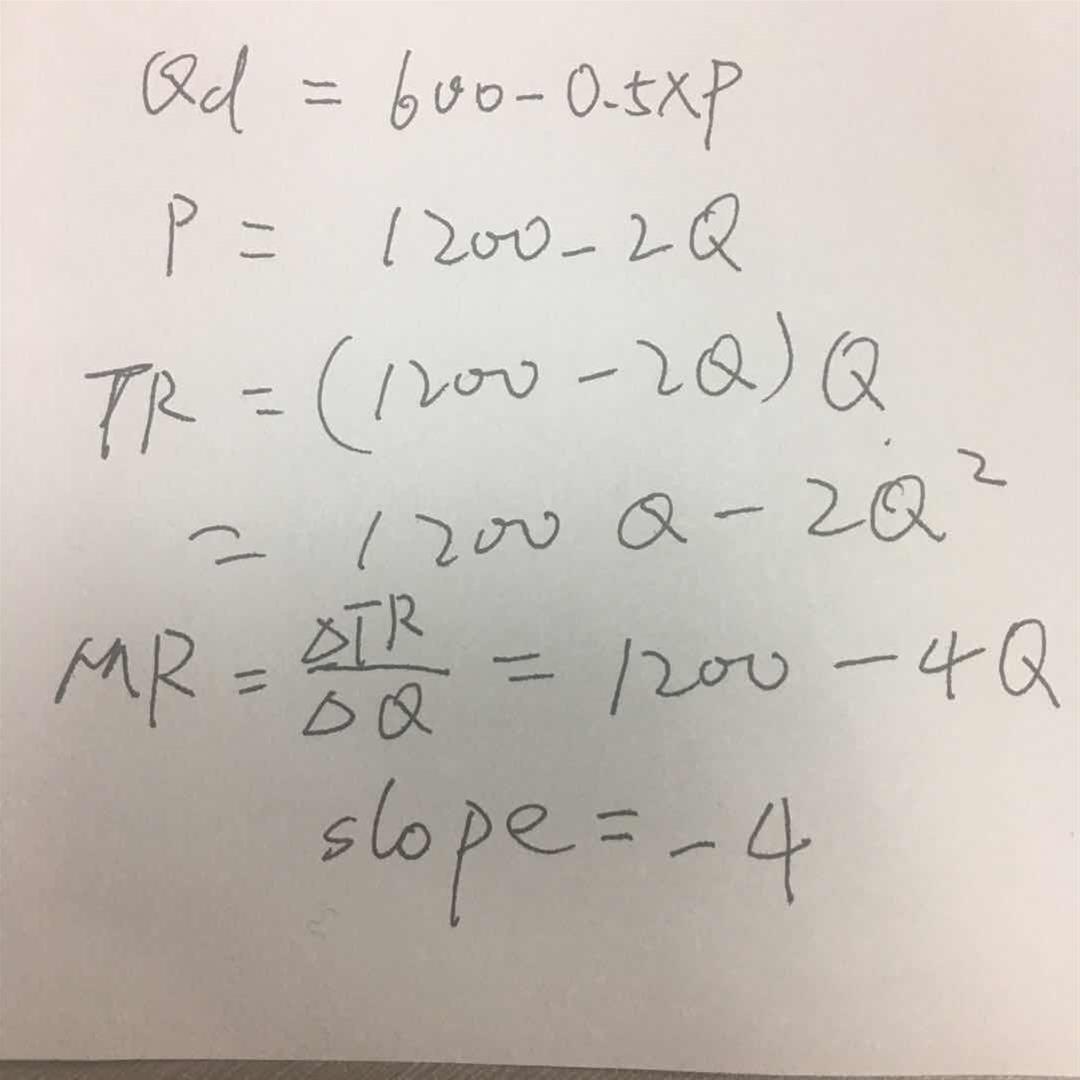 Qd = 600 - 0.5×P
P = 1200 - 2Q
TR = (1200 - 2Q) Q
= 1200 Q - 2Q²
MR = ΔTR/ΔQ = 1200 - 4Q
slope = -4